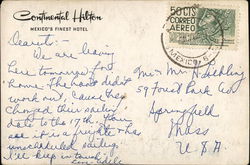 Continental Hilton
MEXICO'S FINEST HOTEL
50 CTS
CORREO
AEREO
MEXICO
Dearest:-
We are leaving
here tomorrow for
home. The boat didn't
work out, 'cause they
changed their sailing
date to the 17th. Guess
it is a freighter & has
unscheduled sailings.
I'll keep in touch.
Mr & Mrs H
59 Forest Park Ave
Springfield
Mass
U.S.A.